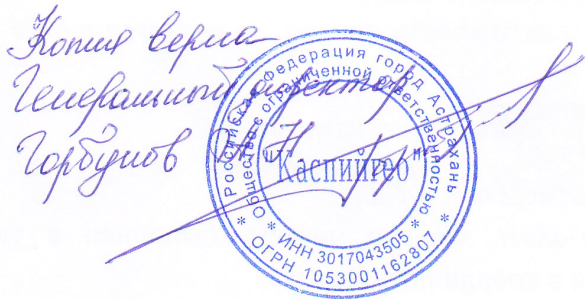 Копия верна
Генеральный директор
Горбунов
* Российская Федерация город Астрахань *
Общество с ограниченной ответственностью
"Каспийгео"
* ИНН 3017043505 *
ОГРН 1053001162807